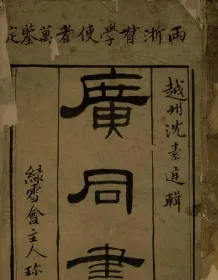 兩浙督學使者萬鑒定
越州沈素庭輯
廣同書
綠雪會主人珍